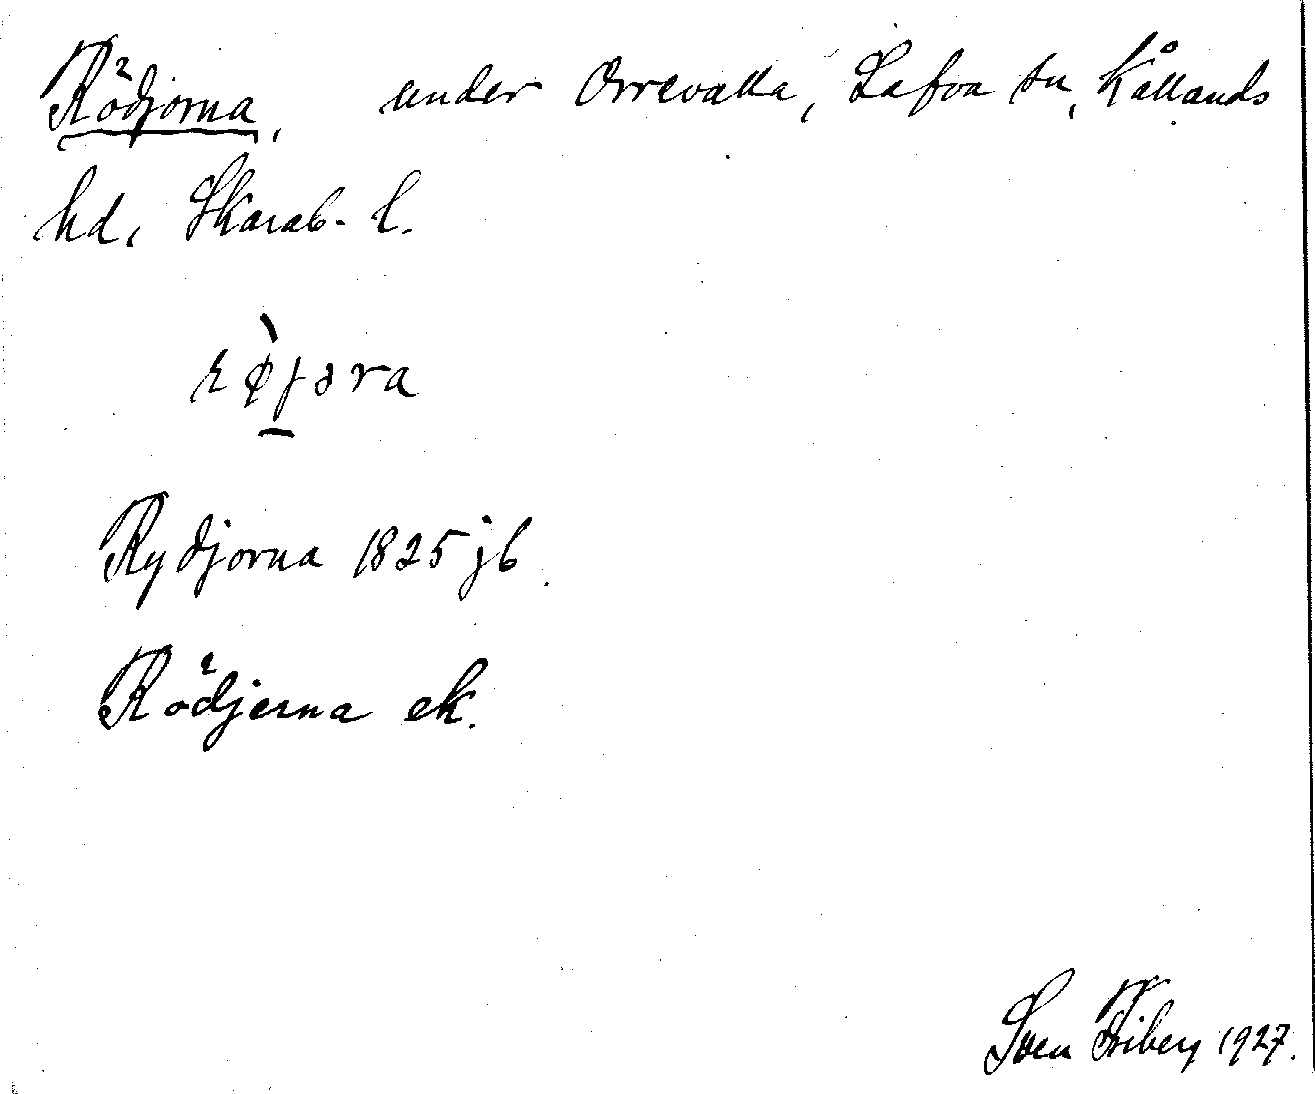 Rödjorna, under Orrevalla, Lafva sn, Kållands
hd, Skarab. l.
rø̀jəra
Rydjorna 1825 jb.
Rödjerna ek.
Sven Friberg 1927.